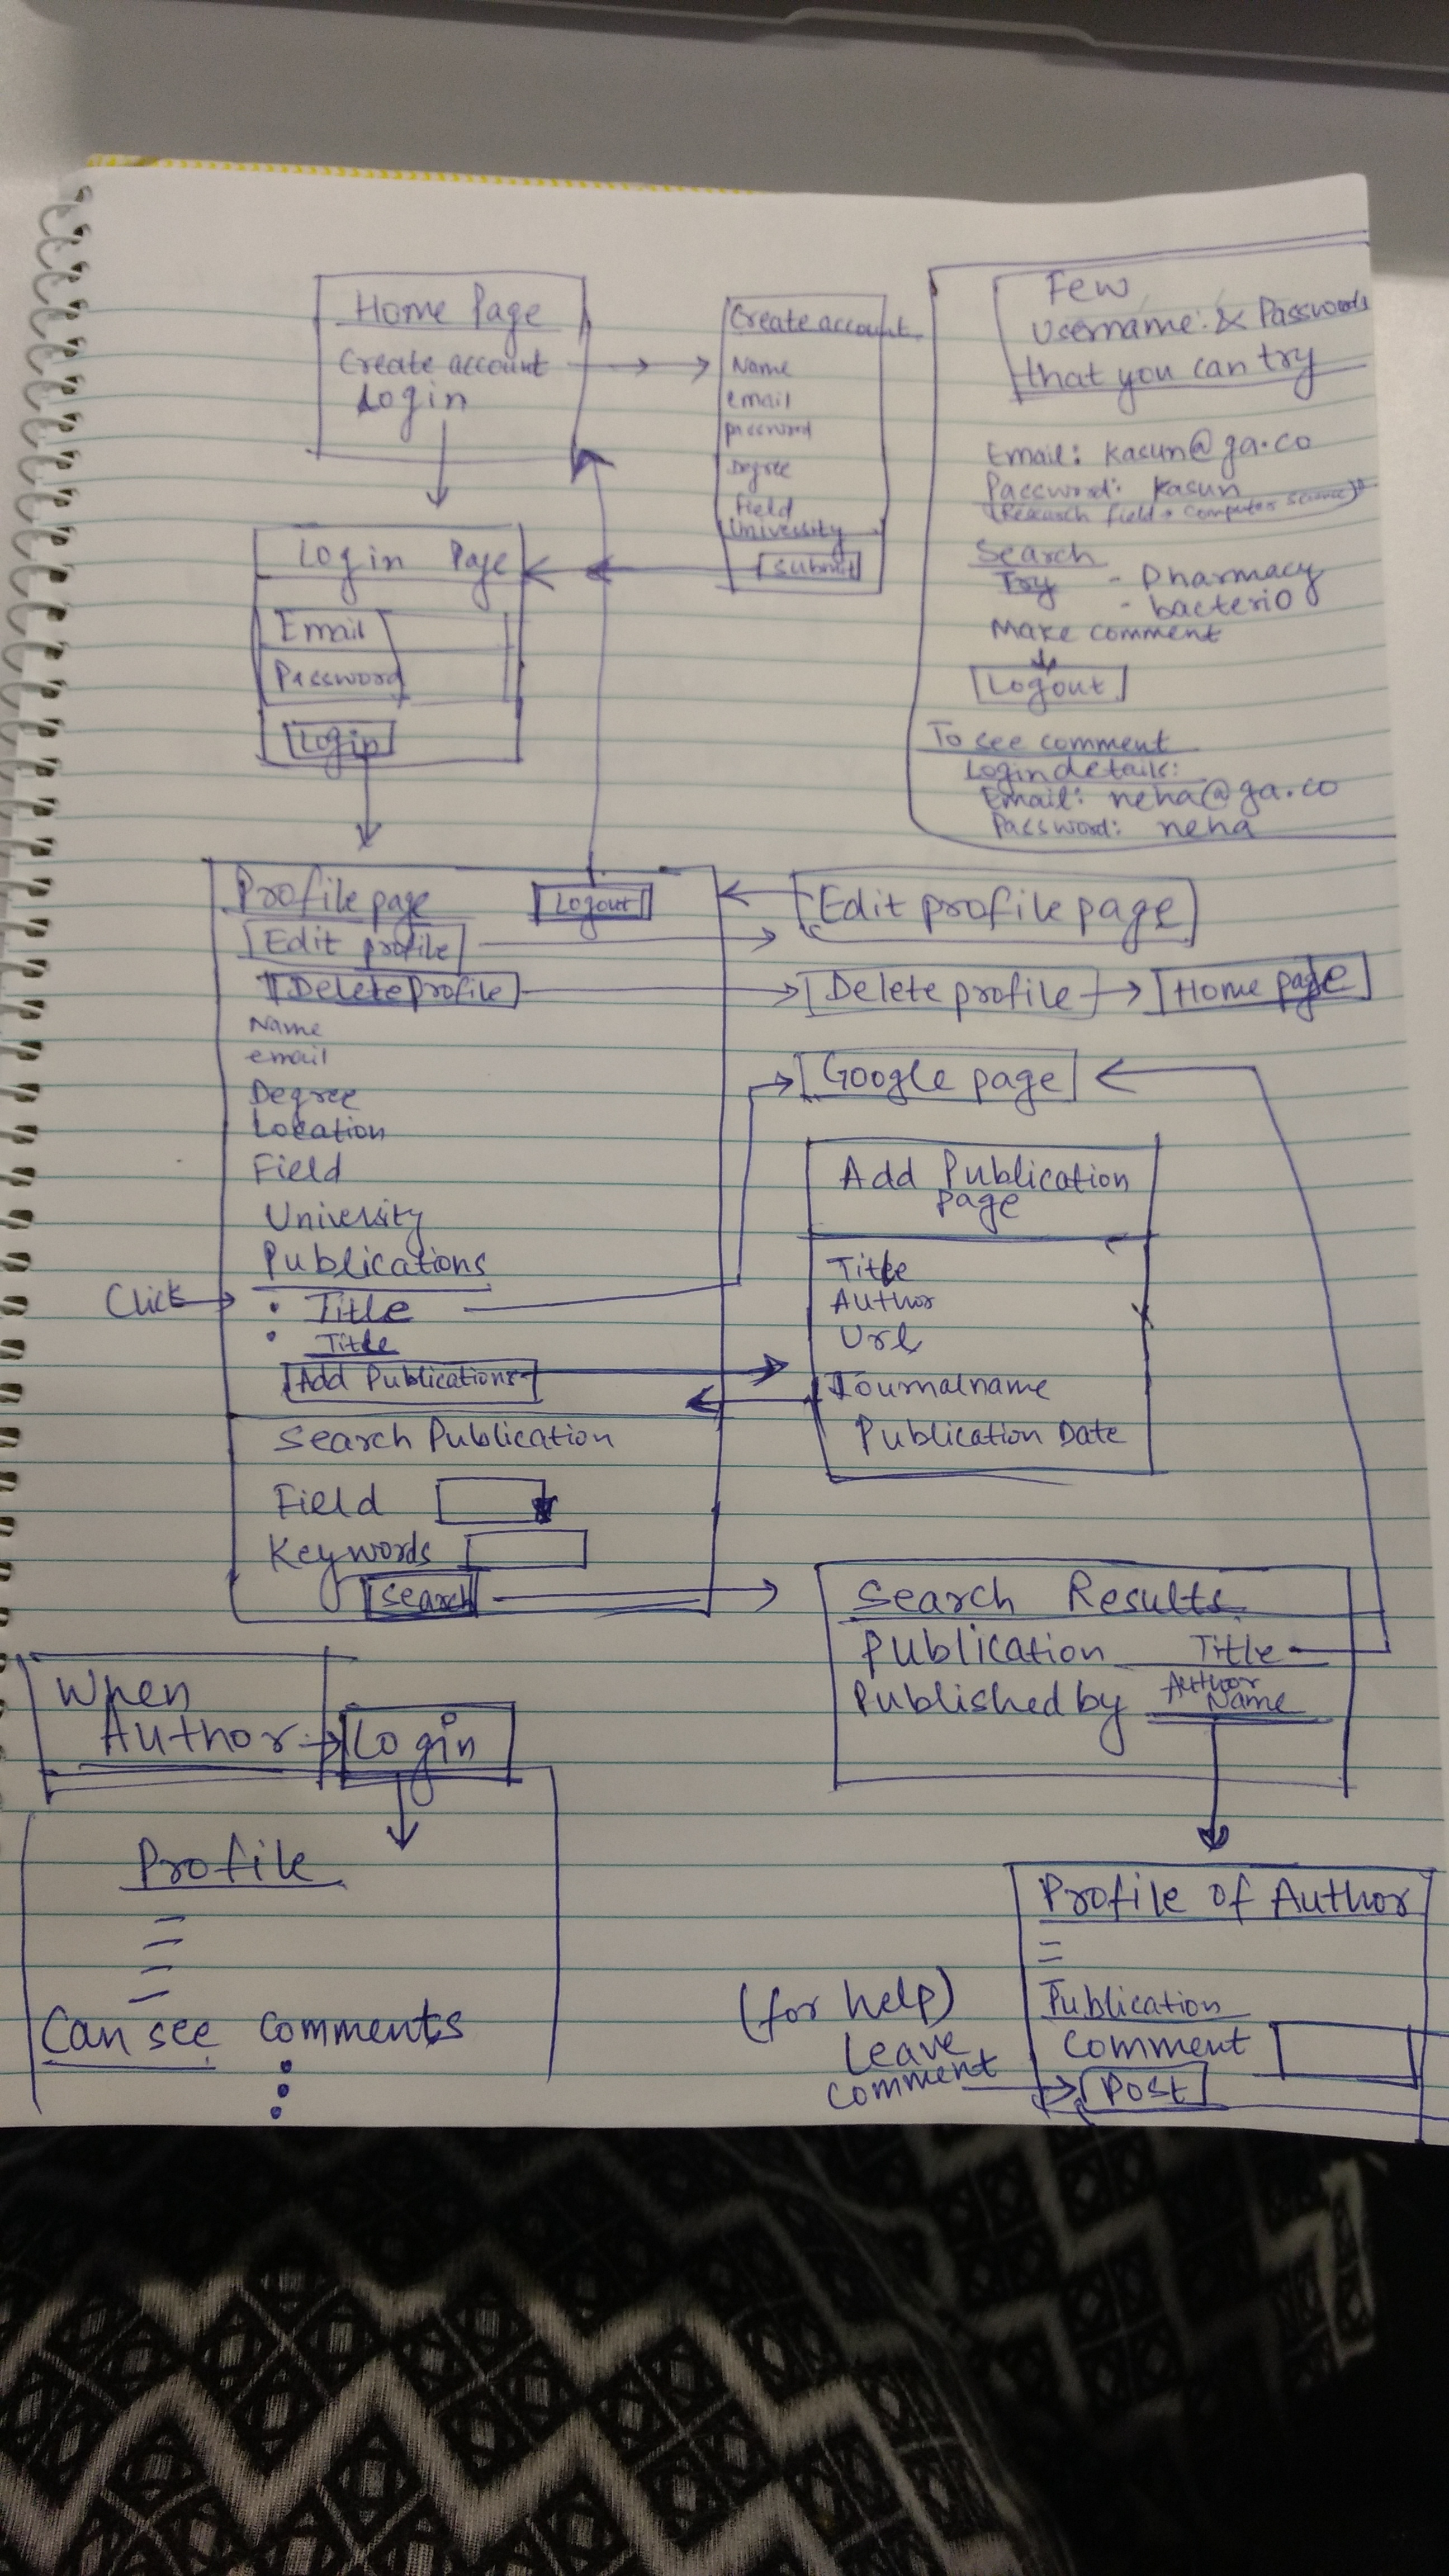 Home Page
Create account
Login
Create account
Name
email
password
Degree
Field
University
Submit
Few
Username: & Passwords
that you can try
Email: kasun@ga.co
Password: kasun
(Research field → Computer Science)
Search
Try - Pharmacy
- bacterio
Make comment
Logout
To see comment
Login details:
Email: neha@ga.co
Password: neha
Login Page
Email
Password
Login
Profile page
Logout
Edit profile
Delete profile
Name
email
Degree
Location
Field
University
Publications
Click
• Title
• Title
Add Publications
Search Publication
Field
Keywords
Search
Edit profile page
Delete profile
Home page
Google page
Add Publication
Page
Title
Author
Url
Journalname
Publication Date
Search Results
Publication Title
Published by Author
Name
When
Author
Login
Profile
Can see comments
Profile of Author
Publication
Comment
Post
(for help)
Leave
comment